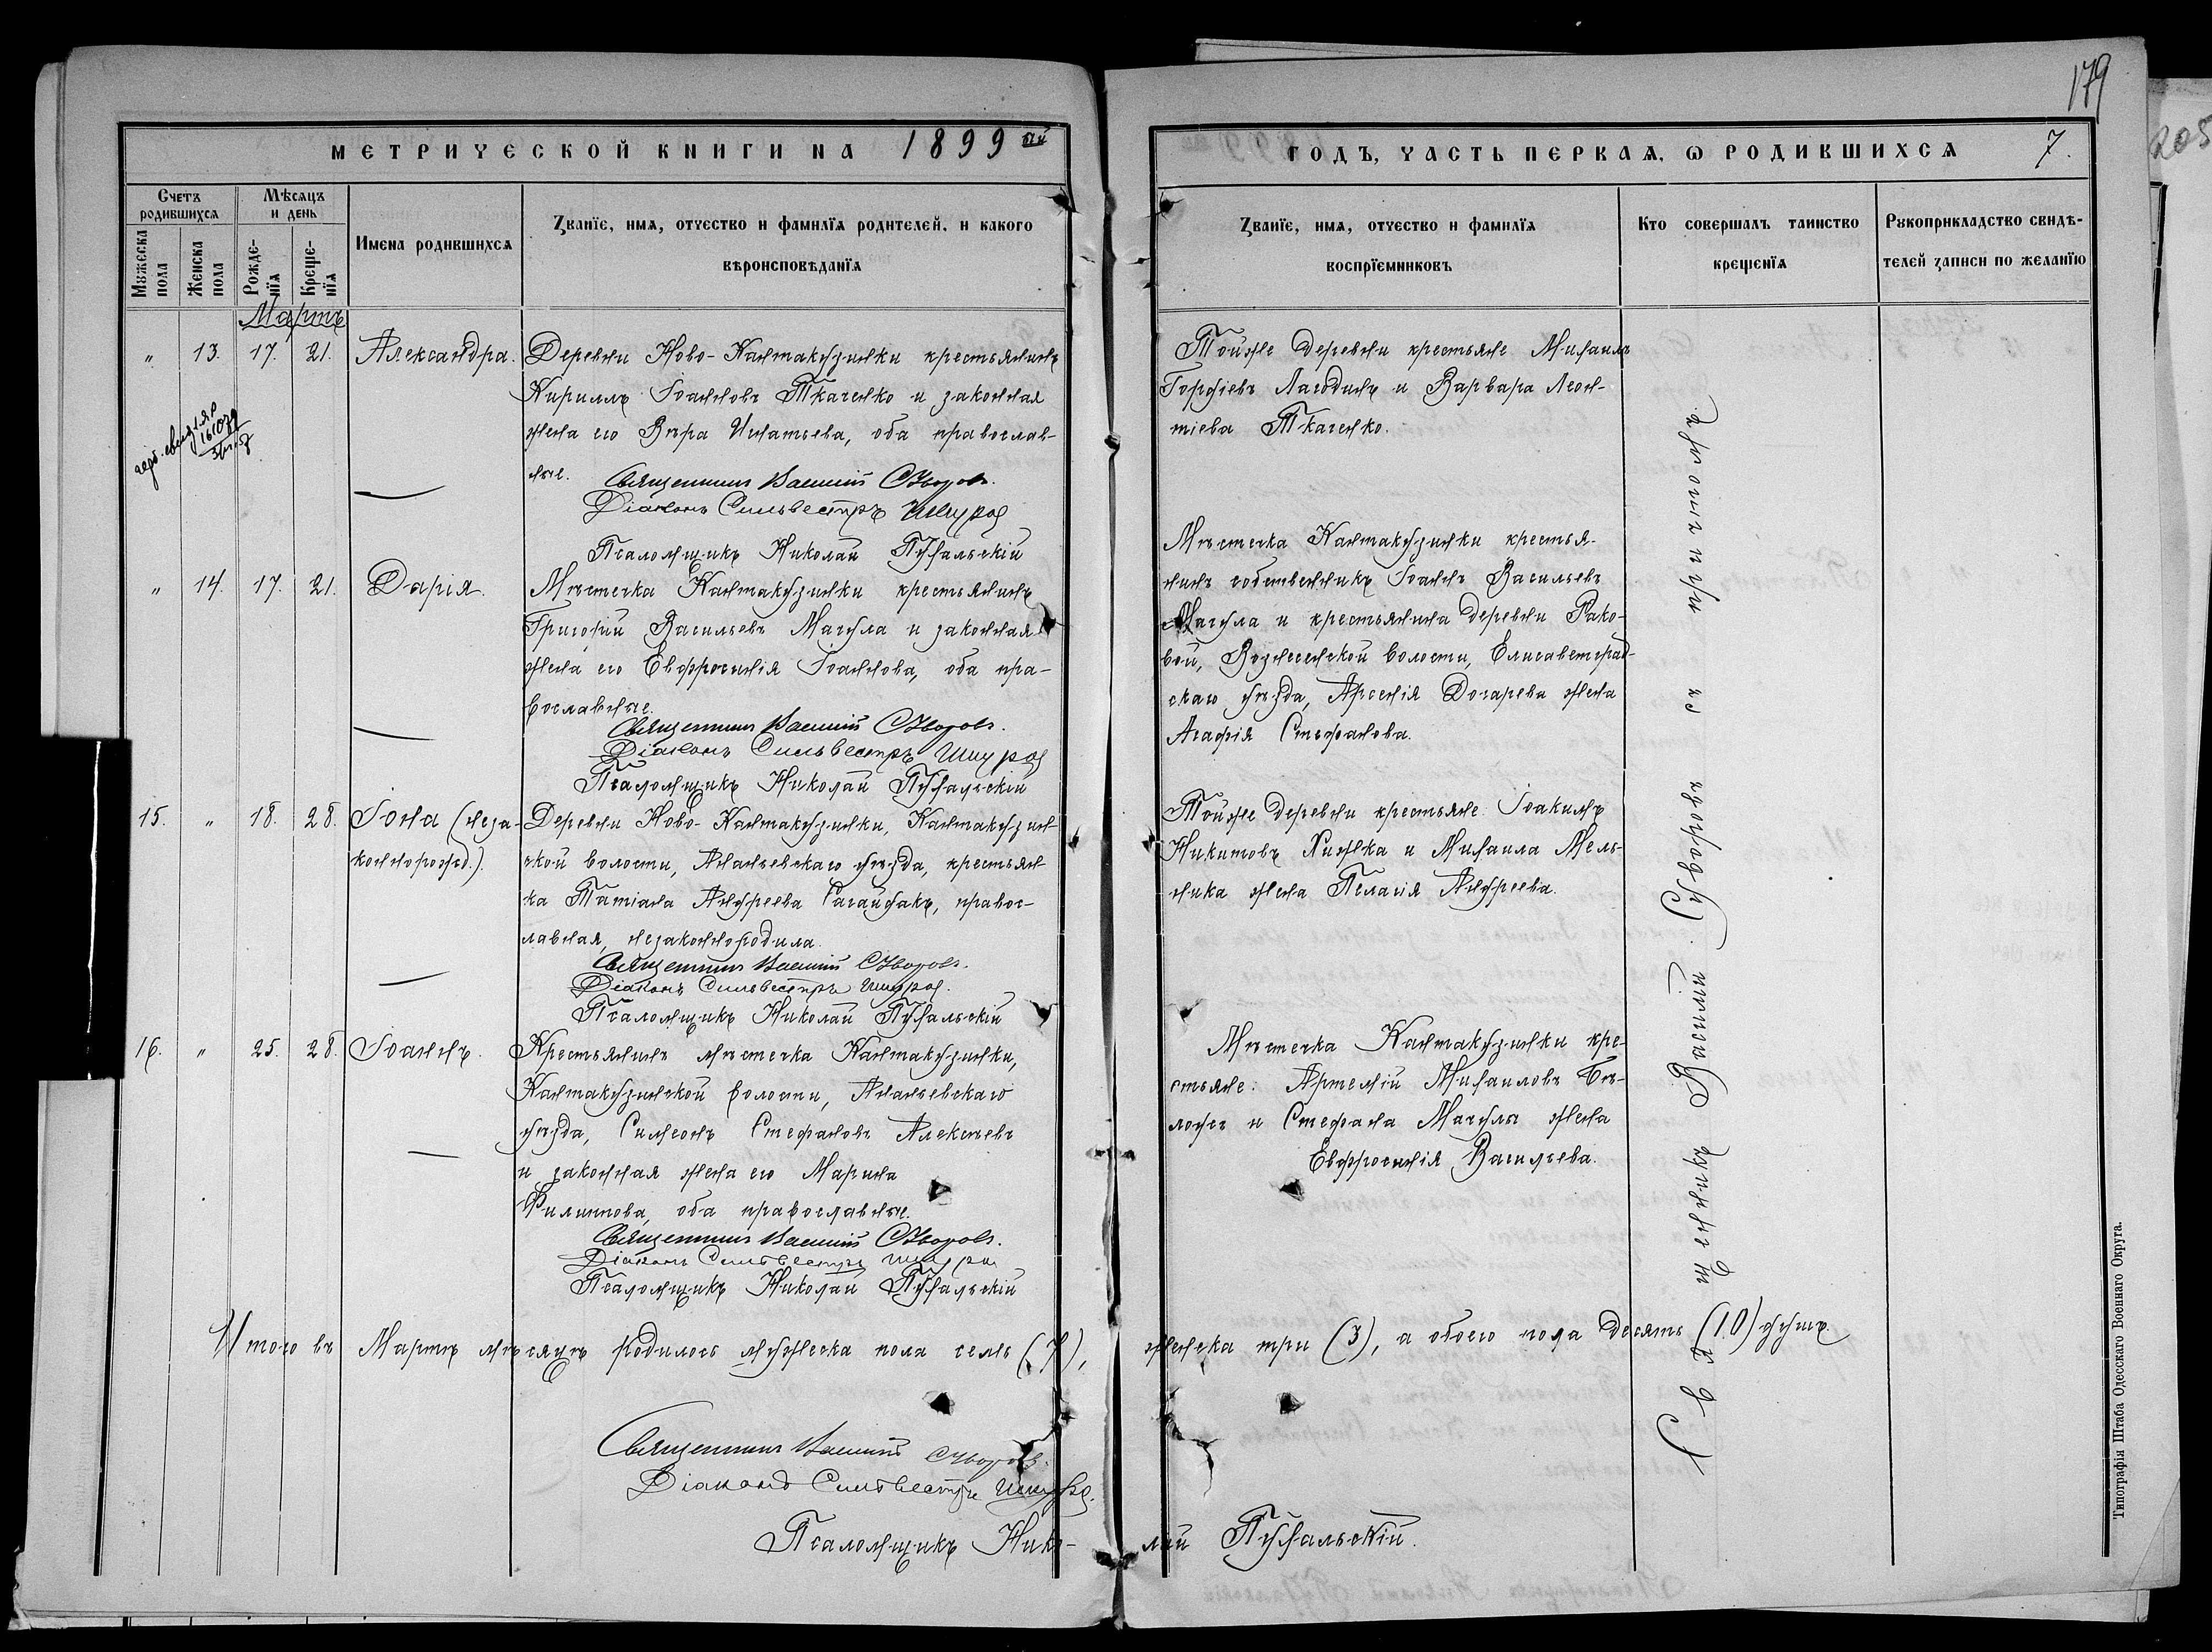 179
205
МЕТРИЧЕСКОЙ КНИГИ НА 1899 ый
ГОДЪ, ЧАСТЬ ПЕРВАЯ, Ѡ РОДИВШИХСЯ 7.
Счетъ родившихся
Мѣсяцъ и день
Мꙋжеска пола
Женска пола
Рожде-нїя
Креще-нїя
Имена родившихся
Званїе, имя, отчество и фамилїя родителей, и какого
вѣроисповѣданїя
Званїе, имя, отчество и фамилїя
воспрїемниковъ
Кто совершалъ таинство
крещенїя
Рꙋкоприкладство свидѣ-
телей записи по желанїю
Мартъ
„ 13. 17. 21. Александра.
Деревни Ново-Кантакузинки крестьянинъ
Кириллъ Іоанновъ Ткаченко и законная
жена его Вѣра Игнатьева, оба православ-
ные.
Священникъ Василій Суворовъ.
Діаконъ Сильвестръ
Псаломщикъ Николай Пухальскій
Тойже деревни крестьяне Михаилъ
Гордіевъ Лагодинъ и Варвара Леон-
тіева Ткаченко.
„ 14. 17. 21. Дарія.
Мѣстечка Кантакузинки крестьянинъ
Григорій Васильевъ Мачула и законная
жена его Евфросинія Іоаннова, оба пра-
вославные.
Священникъ Василій Суворовъ.
Діаконъ Сильвестръ
Псаломщикъ Николай Пухальскій
Мѣстечка Кантакузинки крестья-
нинъ собственникъ Іоаннъ Васильевъ
Мачула и крестьянина деревни Рако-
вой, Вознесенской волости, Елисаветград-
скаго уѣзда, Арсенія Дохарева жена
Агафія Стефанова.
15. „ 18. 28. Іона (неза-
коннорожд.).
Деревни Ново-Кантакузинки, Кантакузин-
ской волости, Ананьевскаго уѣзда, крестьян-
ка Татіана Андреева Сагайдакъ, правос-
лавная, незаконнородила.
Священникъ Василій Суворовъ.
Діаконъ Сильвестръ
Псаломщикъ Николай Пухальскій
Тойже деревни крестьяне: Іоакимъ
Никитовъ Хижка и Михаила Мель-
ника жена Пелагія Андреева.
16. „ 25. 28. Іоаннъ.
Крестьянинъ мѣстечка Кантакузинки,
Кантакузинской волости, Ананьевскаго
уѣзда, Симеонъ Стефановъ Алексѣевъ
и законная жена его Марина
Филиппова, оба православные.
Священникъ Василій Суворовъ.
Діаконъ Сильвестръ
Псаломщикъ Николай Пухальскій
Мѣстечка Кантакузинки кре-
стьяне: Артемій Михаиловъ Бѣ-
лоусъ и Стефана Мачулы жена
Евфросинія Васильева.
Священникъ Василій Суворовъ съ причтомъ.
Итого въ Мартѣ мѣсяцѣ родилось мужеска пола семь (7), женска три (3), а обоего пола десять (10) душъ.
Священникъ Василій Суворовъ.
Діаконъ Сильвестръ
Псаломщикъ Николай Пухальскій.
Типографія Штаба Одесскаго Военнаго Округа.